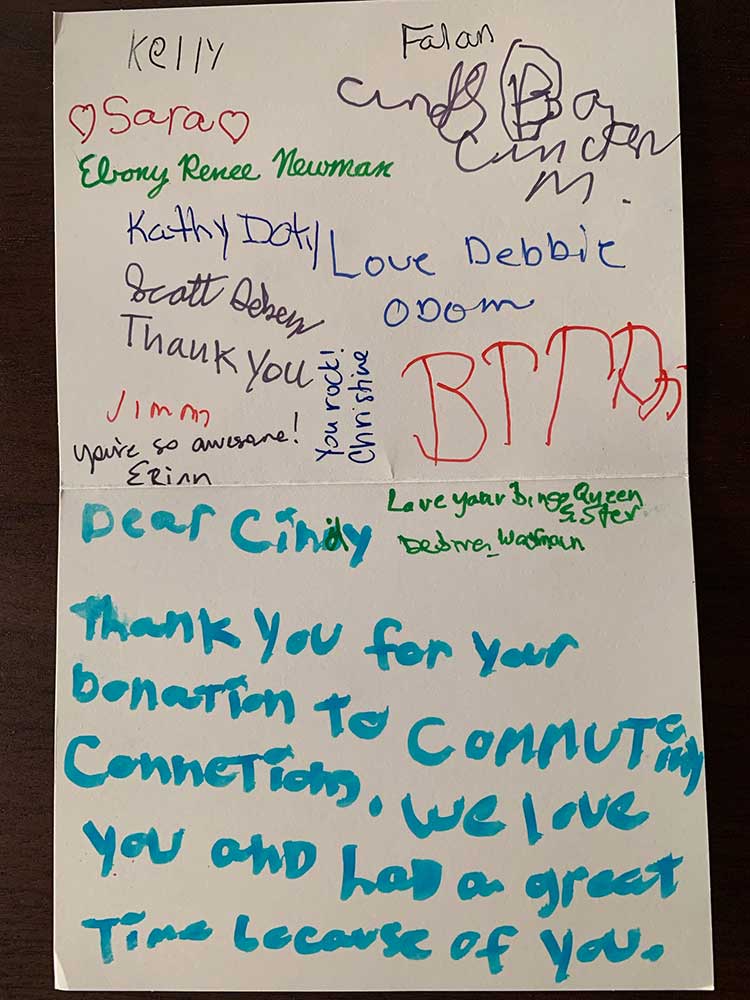 Kelly
Falan
Sara
Ebony Renee Newman
Kathy Doty
Love Debbie
Odom
Scott
Thank you
You rock!
Christine
Jimm
you're so awesome!
Erinn
Love your Bingo Queen
Sister
Dear Cindy
Thank you for your
Donation to Commute
Connetions. We love
you and had a great
Time because of you.